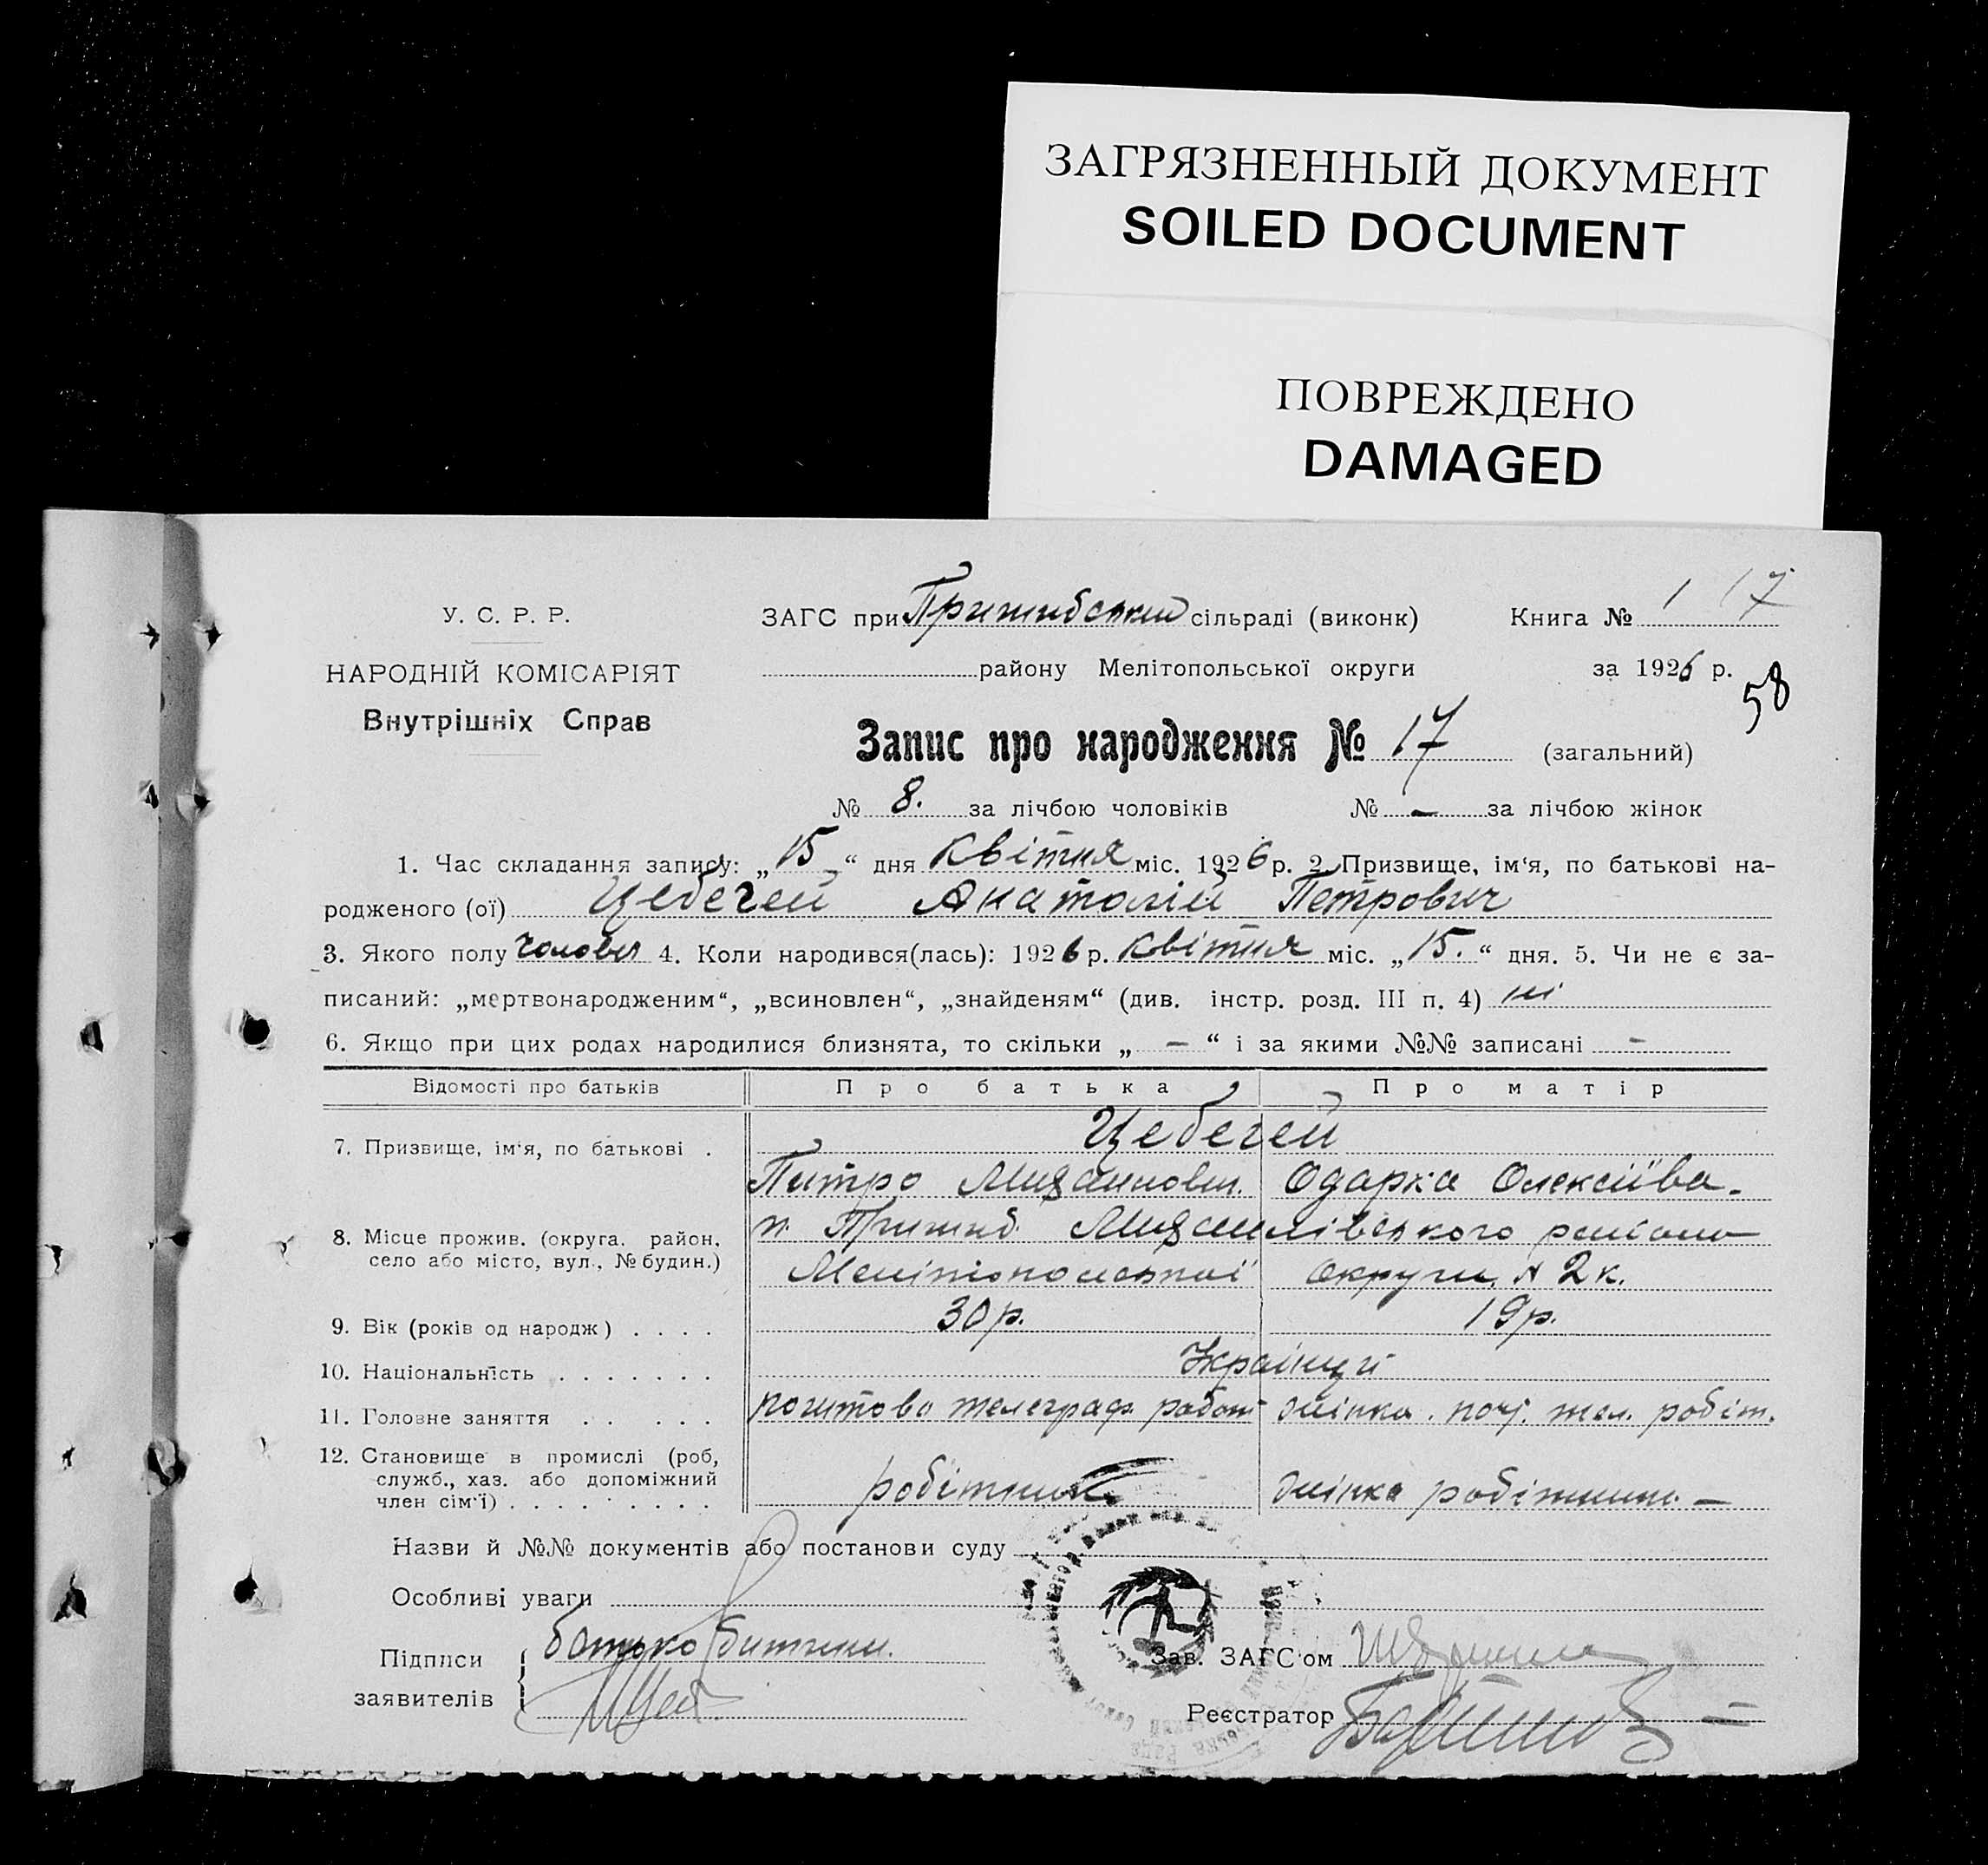 ЗАГРЯЗНЕННЫЙ ДОКУМЕНТ
SOILED DOCUMENT
ПОВРЕЖДЕНО
DAMAGED
У. С. Р. Р.
НАРОДНІЙ КОМІСАРІЯТ
Внутрішніх Справ
ЗАГС при Пришибський сільраді (виконк)
району Мелітопольської округи
Книга № 1 17
за 1926 р.
58
Запис про народження № 17 (загальний)
№ 8. за лічбою чоловіків № — за лічбою жінок
1. Час складання запису: „15“ дня Квітня міс. 1926 р. 2. Призвище, ім‘я, по батькові на-
родженого (ої) Цебегей Анатолій Петрович
3. Якого полу чоловіч 4. Коли народився(лась): 1926 р. Квітня міс. „15.“ дня. 5. Чи не є за-
писаний: „мертвонародженим“, „всиновлен“, „знайденям“ (див. інстр. розд. III п. 4) ні
6. Якщо при цих родах народилися близнята, то скільки „ — “ і за якими №№ записані —
Відомості про батьків Про батька Про матір
7. Призвище, ім‘я, по батькові . Цебегей
Петро Одарка Олексіїва.
8. Місце прожив. (округа. район, село або місто, вул., № будин.) п. Пришиб. району
Мелітопольської округи, № 2 к.
9. Вік (років од народж) . . . . 30 р. 19 р.
10. Національність . . . . . . . Українці
11. Головне заняття . . . . . поштово телеграф. робіт жінка . поч. тел. робіт.
12. Становище в промислі (роб, служб., хаз. або допоміжний член сім‘ї) . . . . . . . . . робітник жінка робітника —
Назви й №№ документів або постанови суду
Особливі уваги
Підписи заявителів { батько дитини.
Зав. ЗАГС‘ом
Реєстратор